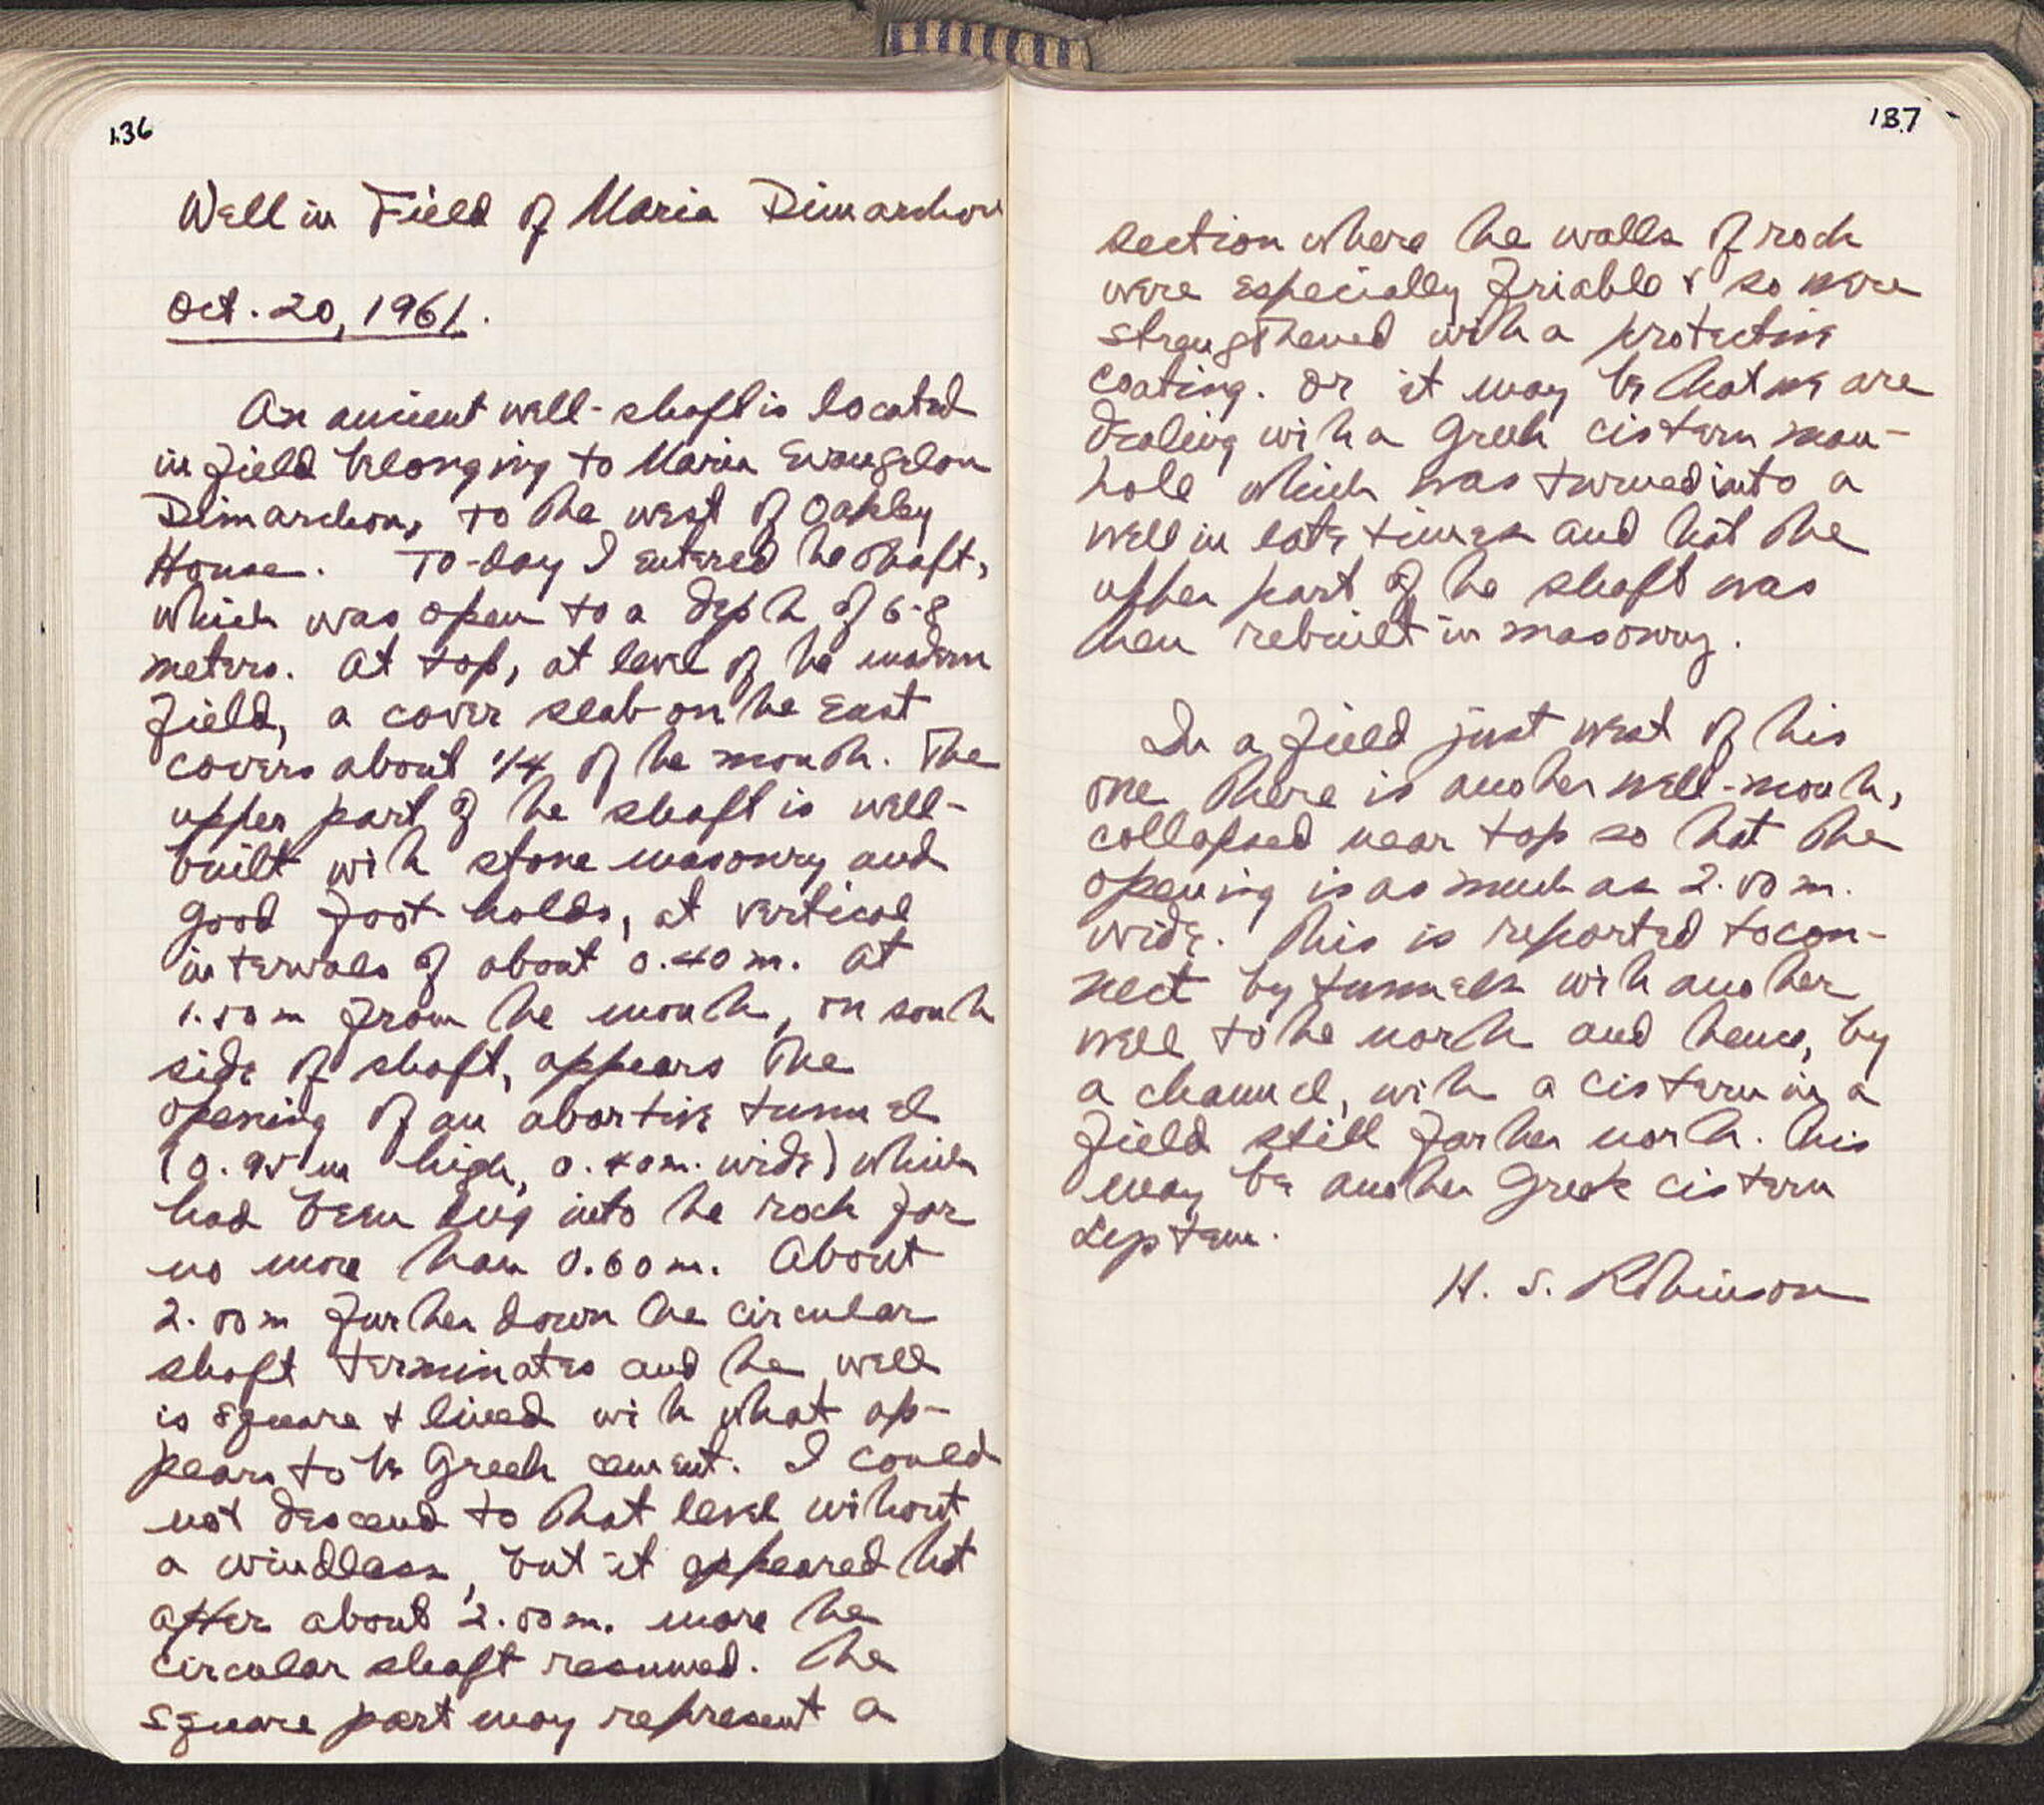 136
Well in Field of Maria Dimarchou
Oct. 20, 1961.
An ancient well-shaft is located
in field belonging to Maria Evangelou
Dimarchou, to the west of Oakley
House. To-day I entered the shaft,
which was open to a depth of 6-8
meters. At top, at level of the modern
field, a cover slab on the East
covers about 1/4 of the mouth. The
upper part of the shaft is well-
built with stone masonry and
good foot holds, at vertical
intervals of about 0.40 m. At
1.50 m from the mouth, on south
side of shaft, appears the
opening of an abortive tunnel
(0.95 m high, 0.40 m. wide) which
had been dug into the rock for
no more than 0.60 m. About
2.00 m further down the circular
shaft terminates and the well
is square + lined with what ap-
pears to be Greek cement. I could
not descend to that level without
a windlass, but it appeared that
after about 2.00 m. more the
circular shaft resumed. The
square part may represent a
137
section where the walls of rock
were especially friable & so were
strengthened with a protective
coating. Or it may be that we are
dealing with a Greek cistern man-
hole which was turned into a
well in late times and that the
upper part of the shaft was
then rebuilt in masonry.
In a field just west of this
one there is another well-mouth,
collapsed near top so that the
opening is as much as 2.00 m.
wide. This is reported to con-
nect by tunnels with another
well to the north and thence, by
a channel, with a cistern in a
field still farther north. This
may be another Greek cistern
system.
H. S. Robinson